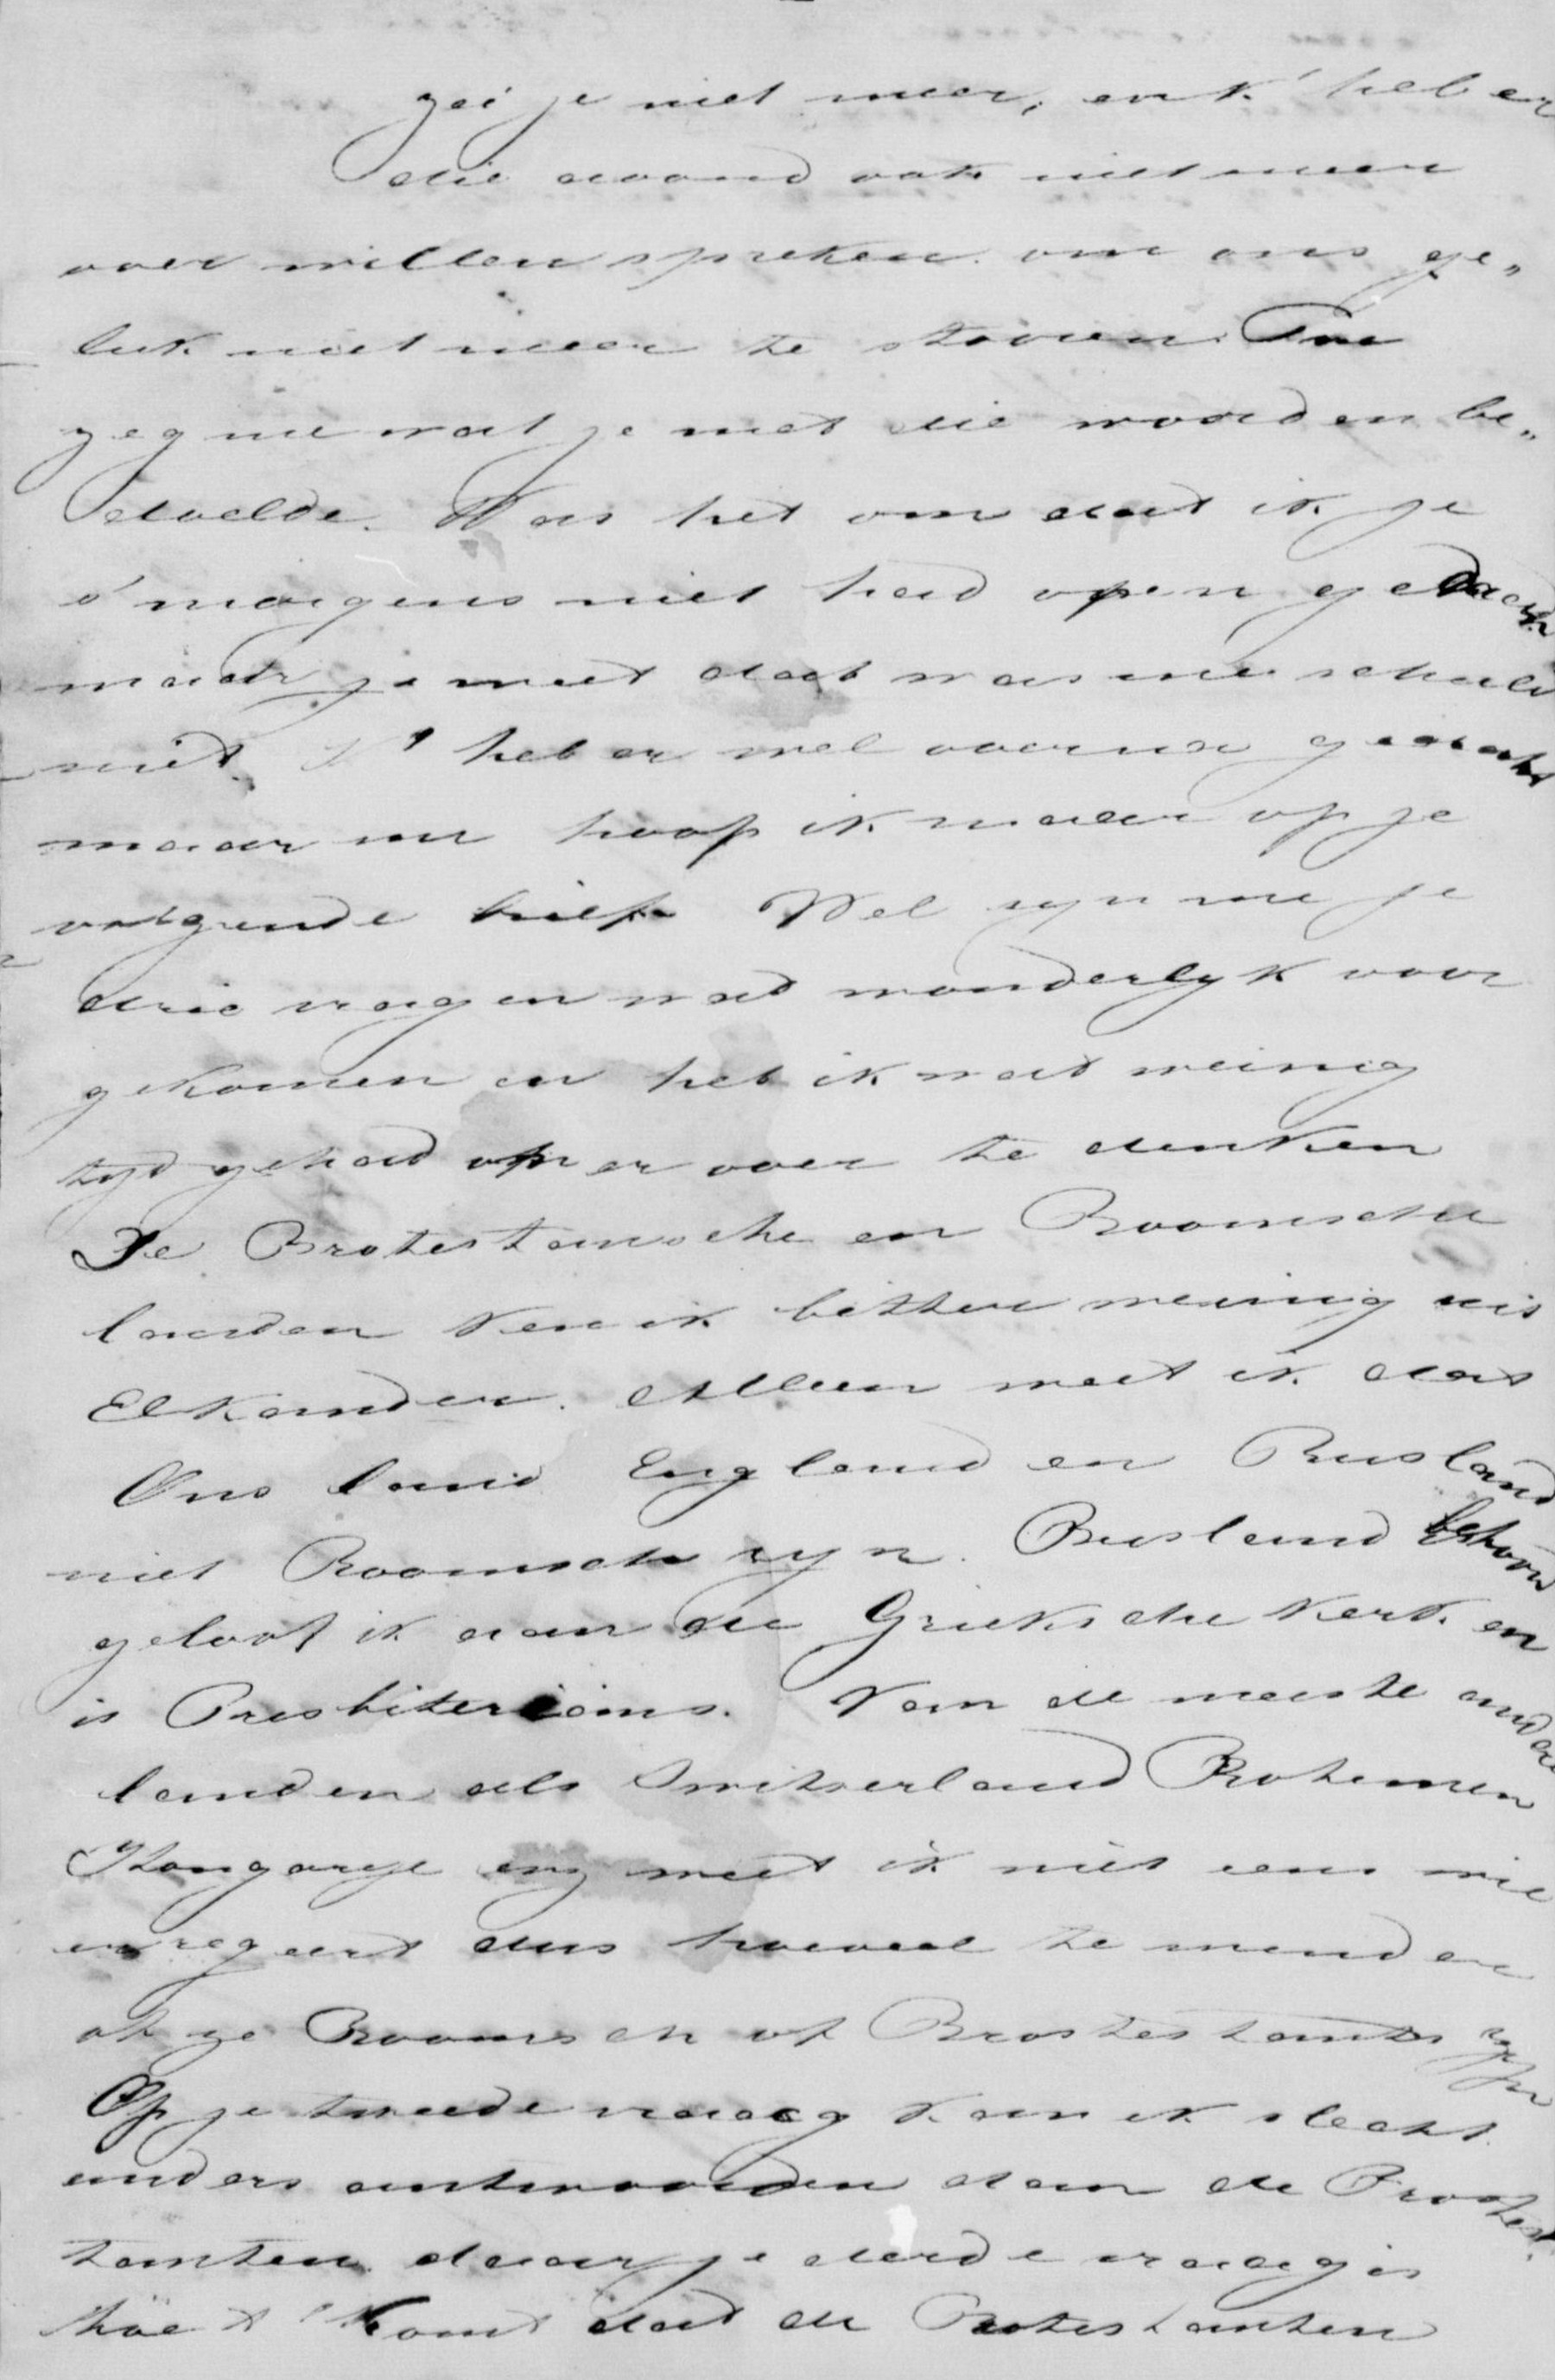 zei je niet meer, en k' heb er
die avond ook niet meer
over willen spreken om ons ge„
luk niet meer te storen. Toe
zeg me wat je met die woorden be„
doelde. Was het om dat ik je
s' morgens niet had open gedaan
maar je weet dat was me schuld
niet. K' heb er wel over na gedacht
maar nu hoop ik maar op je
volgende brief. Wel zyn me je
drie vragen wat wonderlyk voor
gekomen en heb ik wat weinig
tyd gehad om er over te denken
De Protestansche en Roomsche
landen ken ik bitter weinig uis
Elkander. Alleen weet ik dat
Ons land Engeland en Rusland
niet Roomsch zyn. Rusland behoord
geloof ik aan de Grieksche Kerk en
is Presbiteriaans. Van de meeste andere
landen als Switserland Bohemen
Hongarye enz weet ik niet eens wie
er regeert dus hoeveel te minder
of ze Roomsch of Protestants zyn
Op je tweede vraag kan ik slecht
anders antwoorden dan de Protes„
tanten daar je derde vraag is
hoe t' komt dat de Protestanten